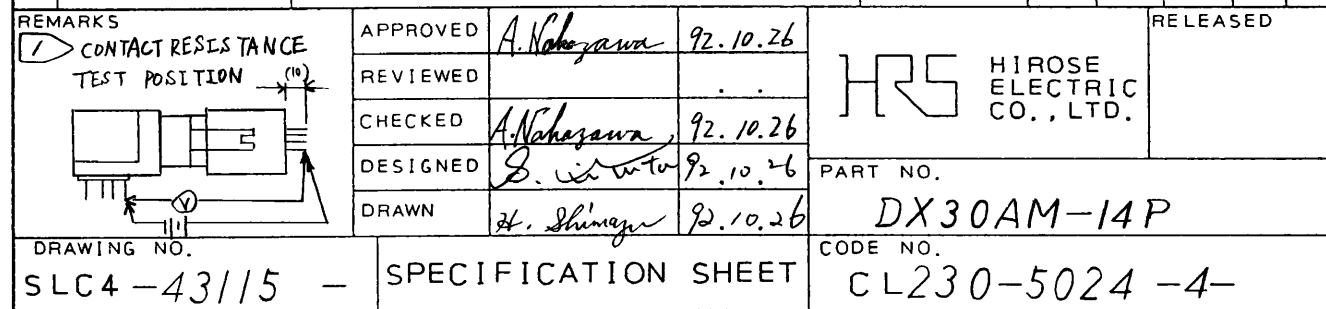 REMARKS
1 CONTACT RESISTANCE
TEST POSITION (10)
V
APPROVED A. Nakazawa 92.10.26
REVIEWED . .
CHECKED A. Nakazawa 92.10.26
DESIGNED S. 92.10.26
DRAWN H. Shimazu 92.10.26
HRS HIROSE
ELECTRIC
CO., LTD.
RELEASED
PART NO.
DX30AM-14P
DRAWING NO.
SLC4-43115 -
SPECIFICATION SHEET
CODE NO.
CL230-5024-4-